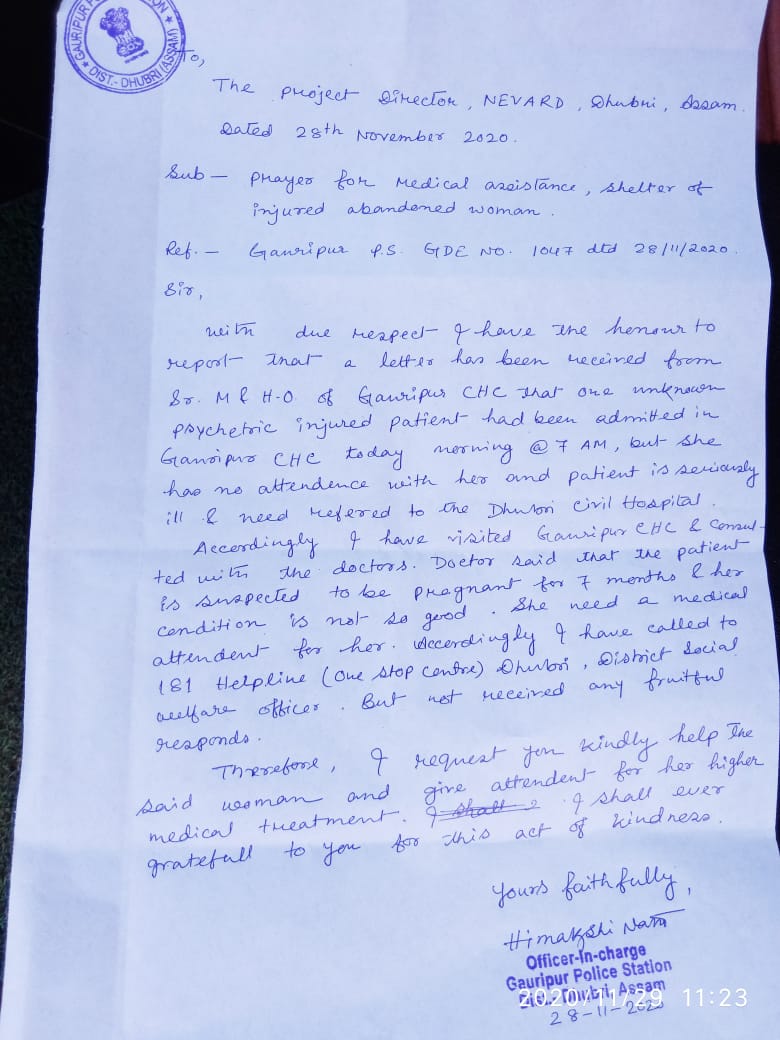 GAURIPUR POLICE STATION
DIST.- DHUBRI (ASSAM)
To,
The Project Director, NEVARD, Dhubri, Assam.
Dated 28th November 2020.
Sub — Prayer for Medical assistance, shelter of
injured abandoned woman.
Ref. — Gauripur P.S. GDE NO. 1047 dtd 28/11/2020.
Sir,
With due respect I have the honour to
report that a letter has been received from
Sr. M & H.O. of Gauripur CHC that one unknown
psychetric injured patient had been admitted in
Gauripur CHC today morning @ 7 AM, but she
has no attendence with her and patient is seriously
ill & need refered to the Dhubri Civil Hospital.
Accordingly I have visited Gauripur CHC & Consul-
ted with the doctors. Doctor said that the patient
is suspected to be pregnant for 7 months & her
condition is not so good. She need a medical
attendent for her. Accordingly I have called to
181 Helpline (One Stop Centre) Dhubri, District Social
welfare officer. But not received any fruitful
responds.
Therefore, I request you kindly help the
said woman and give attendent for her higher
medical treatment. I shall I shall ever
gratefull to you for this act of kindness.
Yours faithfully,
Himakshi Nath
Officer-In-charge
Gauripur Police Station
Dist. Dhubri, Assam
2020/11/29 11:23
28-11-2020